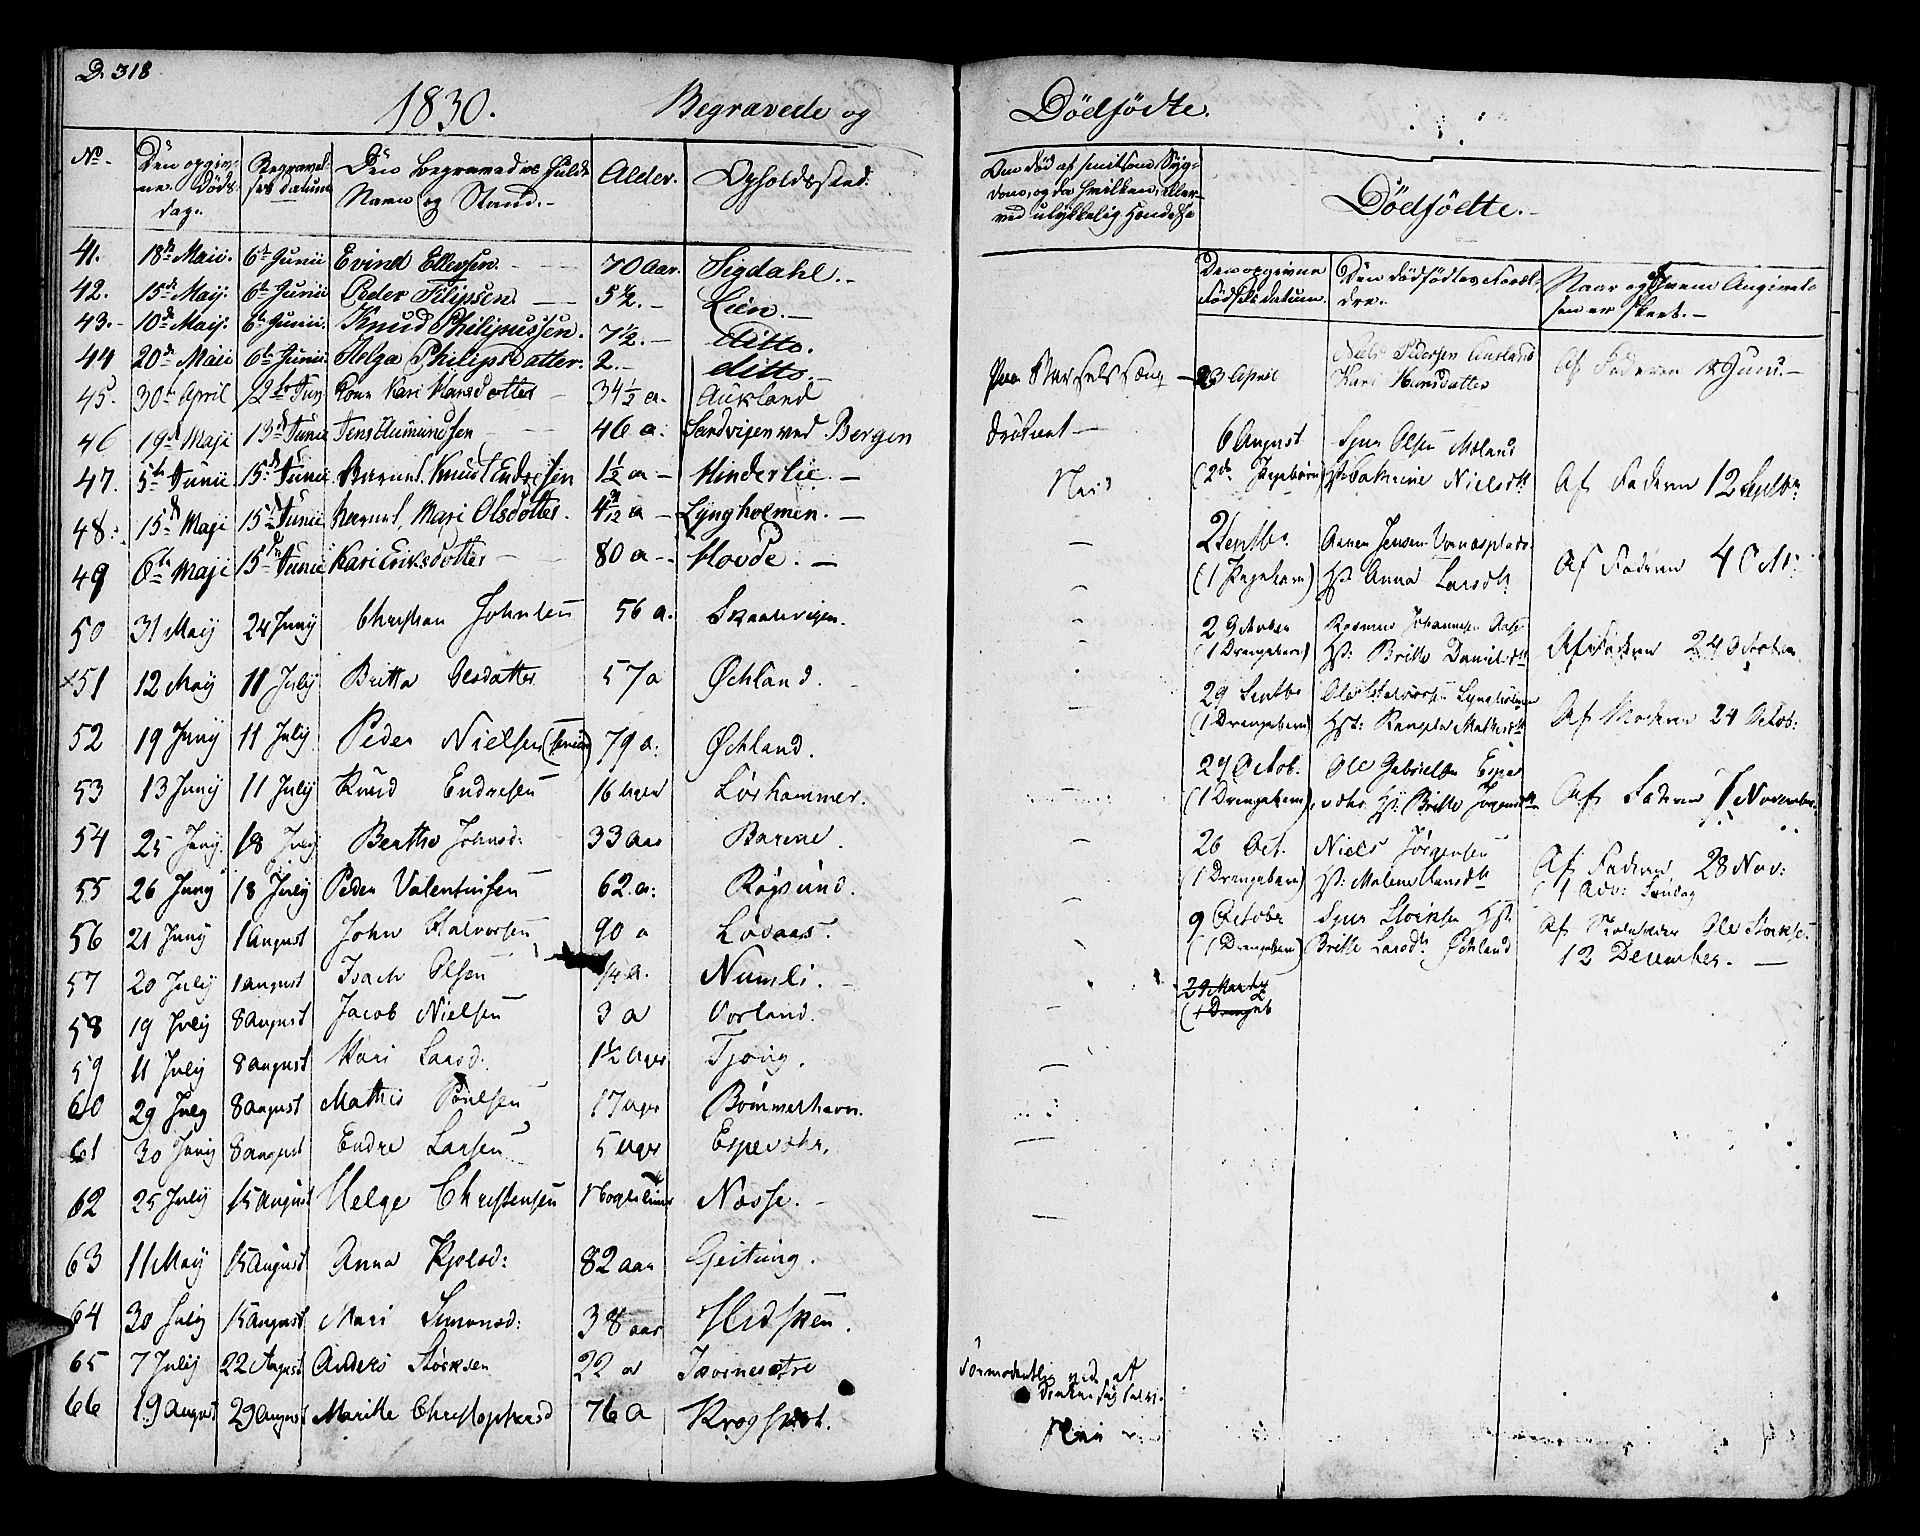 D. 318
1830. Begravede og Dödfödte.
No. Den opgivne Döds dag. Begravelses datum Den begravedes fulde Navn og Stand. Alder. Opholdssted.
41. 18de Maii. 6te Junii Evind Ellevsen. 70 Aar. Sigdahl.
42. 15de Maij. 6te Junii Peder Filipsen. 5 1/2. Lien.
43. 10de Maij. 6te Junii. Knud Philipussen. 7 1/2. ditto.
44 20de Maii 6te Junii. Helga Philipsdatter. 2. ditto.
45. 30te April 12te Jun Kone Kari Hansdotter 34 1/2 a. Aukland
46 19de Maji 13de Junii Jens Aumundsen 46 a. Sandvigen ved Bergen
47. 5te Junii 15de Junii Barnet Knud Endresen 1 1/2 a Hinderlie.
48. 15de Maji 15de Junii Barnet, Mari Olsdotter. a Lyngholmen.
49 6te Maji 15de Junii Kari Eriksdotter 80 a Hovde.
50 31 Maij 24 Junij Christian Johnsen 56 a. Skaalevigen.
51 12 Maij 11 Julij Britta Olsdatter 57 a Øchland.
52 19 Junij 11 Julij Peder Nielsen 79 a. Øchland.
53 13 Junij 11 Julij Knud Endresen 16 Uger Lørhammer.
54 25 Junij. 18 Julij Berthe Johnsd: 33 aar Barene.
55 26 Junij 18 Julij Peder Valentinsen 62. a. Røgsund.
56 21 Junij 1 August John Halvorsen 90 a Løvaas.
57 20 Julij 1 august Isach Olsen a. Numsli.
58 19 Julij 8 August Jacob Nielsen 3 a Vorland.
59 11 Julij 8 august Kari Larsd: 1 1/2 Uger Tjong.
60 29 July 8 August Mathis Poulsen 17 Uger Bommerhavn.
61 30 Junij 8 august Endre Larsen 5 Uger Espevær.
62 25 Julij 15 August Helge Christensen Nosse.
63 11 Maij 15 August Anna Kjolsd: 82 aar Geitung.
64 30 Julij 15 August Mari Simonsd: 38 aar Hidsken.
65 7 Julij 22 August Anders Störksen 22 a
66 19 August 29 August Maritte Christophersd 76 a Krogspot.
Den död af smitsom Sygdom, og da hvilken, eller ved ulykkelig Hændelse
Dödfödte.
Den opgivne Födsels datum. Den dödfödtes Forældre. Naar og hvem Angivelsen er skeet.
paa Barselsseng 23 April Niels Pedersen Aukland Kari Hansdatter Af Faderen Juni.
druknet
Nei
6 August Sjur Olsen Mæland
Hst: Cathrine Nielsdtr Af Faderen 12 Septbr
2 Septbr. Jensen
(1 Pigebarn) Hst. Anna Larsdtr Af Faderen 4 Octr.
2 October Rasmus Johannesen
(1 Drengebarn) Hst: Britte Danielsdtr Af Faderen 24 October
29 Septbr Ole
(1 Drengebarn) Hst: Mathisdtr Af Moderen 24 Octob:
27 Octob. Ole Gabrielsen Espe
(1 Drengebarn) vær. Hst: Britte Jörgensdtr Af Faderen 7 November
26 Oct. Niels Jörgensen
(1 Drengebarn) Hst: Malene Hansdtr Af Faderen 28 Nov:
(1 Adv: Söndag
9 Octobr Sjur Hst:
(1 Drengebarn) Britte Larsdtr Øchland Af Ole Störksen
12 December.
29 Martij
(1 Drengeb
Formodentlig ved at